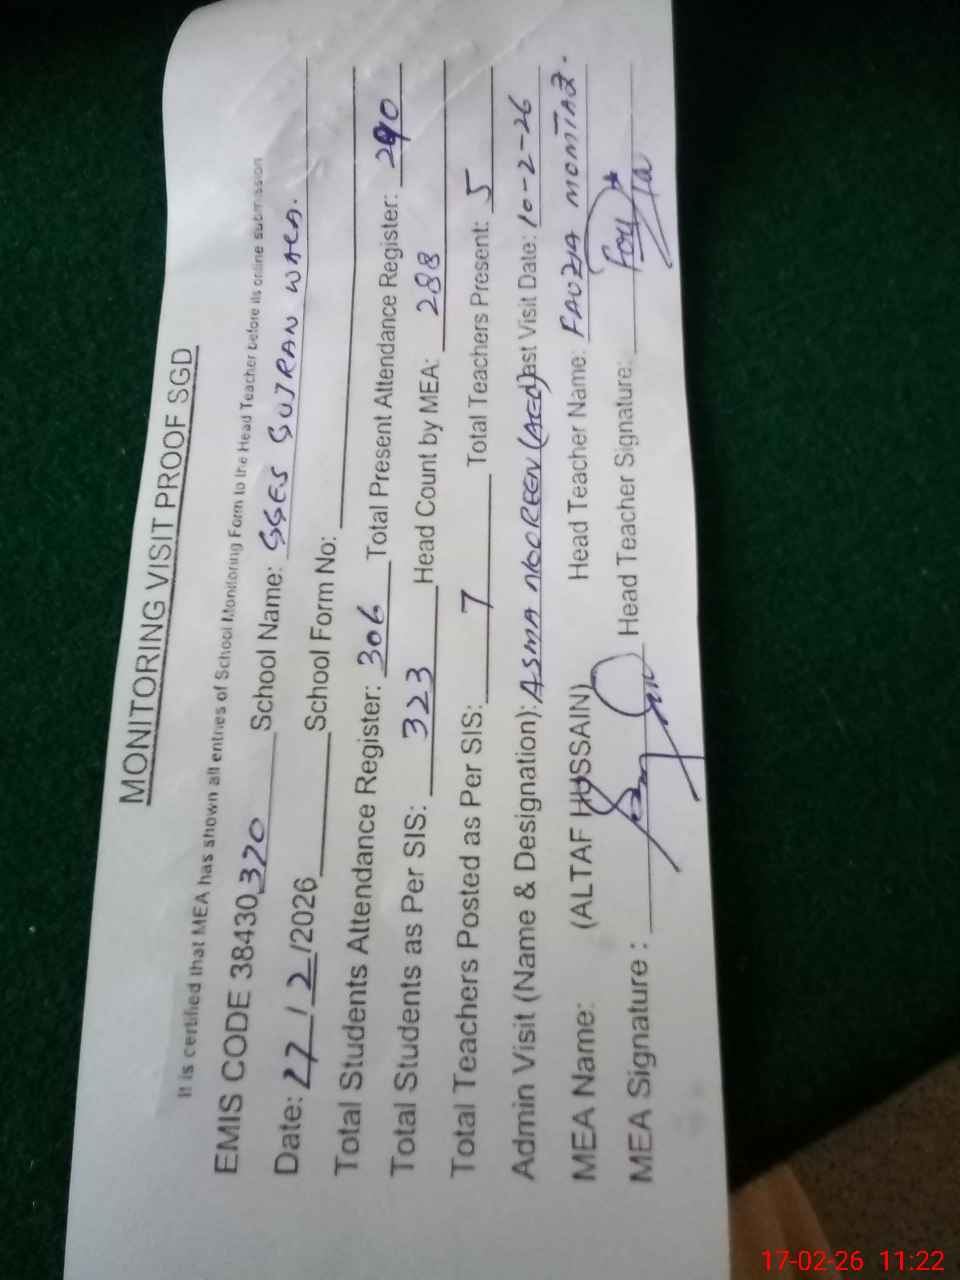 MONITORING VISIT PROOF SGD
It is certified that MEA has shown all entries of School Monitoring Form to the Head Teacher before its online submission
EMIS CODE 38430370 School Name: GGES GUJRAN WALA.
Date: 27/2/2026 School Form No:
Total Students Attendance Register: 306 Total Present Attendance Register: 290
Total Students as Per SIS: 323 Head Count by MEA: 288
Total Teachers Posted as Per SIS: 7 Total Teachers Present: 5
Admin Visit (Name & Designation): ASMA NOOREEN (AEO) Last Visit Date: 10-2-26
MEA Name: (ALTAF HUSSAIN) Head Teacher Name: FAUZIA MOMTAZ.
MEA Signature : Head Teacher Signature:
17-02-26 11:22